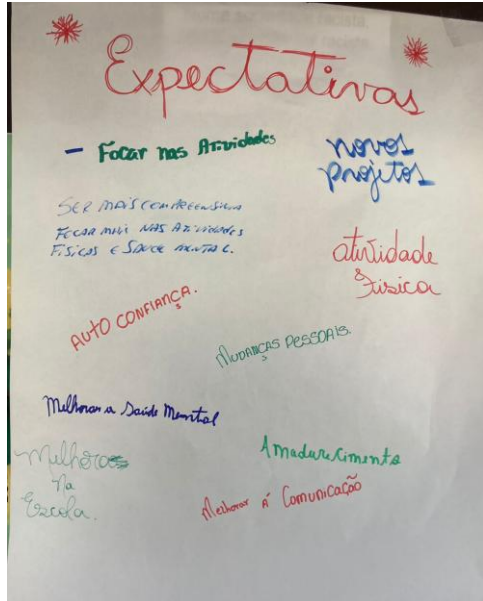 Expectativas
- Focar nas Atividades
novos
projetos
SER MAIS COMPREENSIVA
FOCAR MAIS NAS ATIVIDADES
FÍSICAS E SAÚDE MENTAL.
atividade
Física
AUTO CONFIANÇA.
MUDANÇAS PESSOAIS.
Melhorar a Saúde Mental
Amadurecimento
Melhoras
na
Escola.
Melhorar á Comunicação